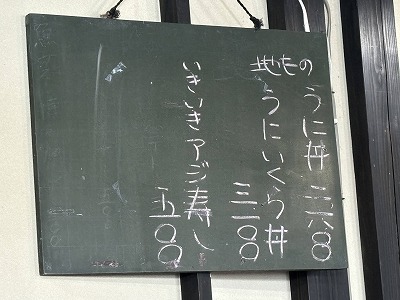 地もの うに丼 三六〇〇
うにいくら丼 三一〇〇
いきいきアジ寿し 五〇〇